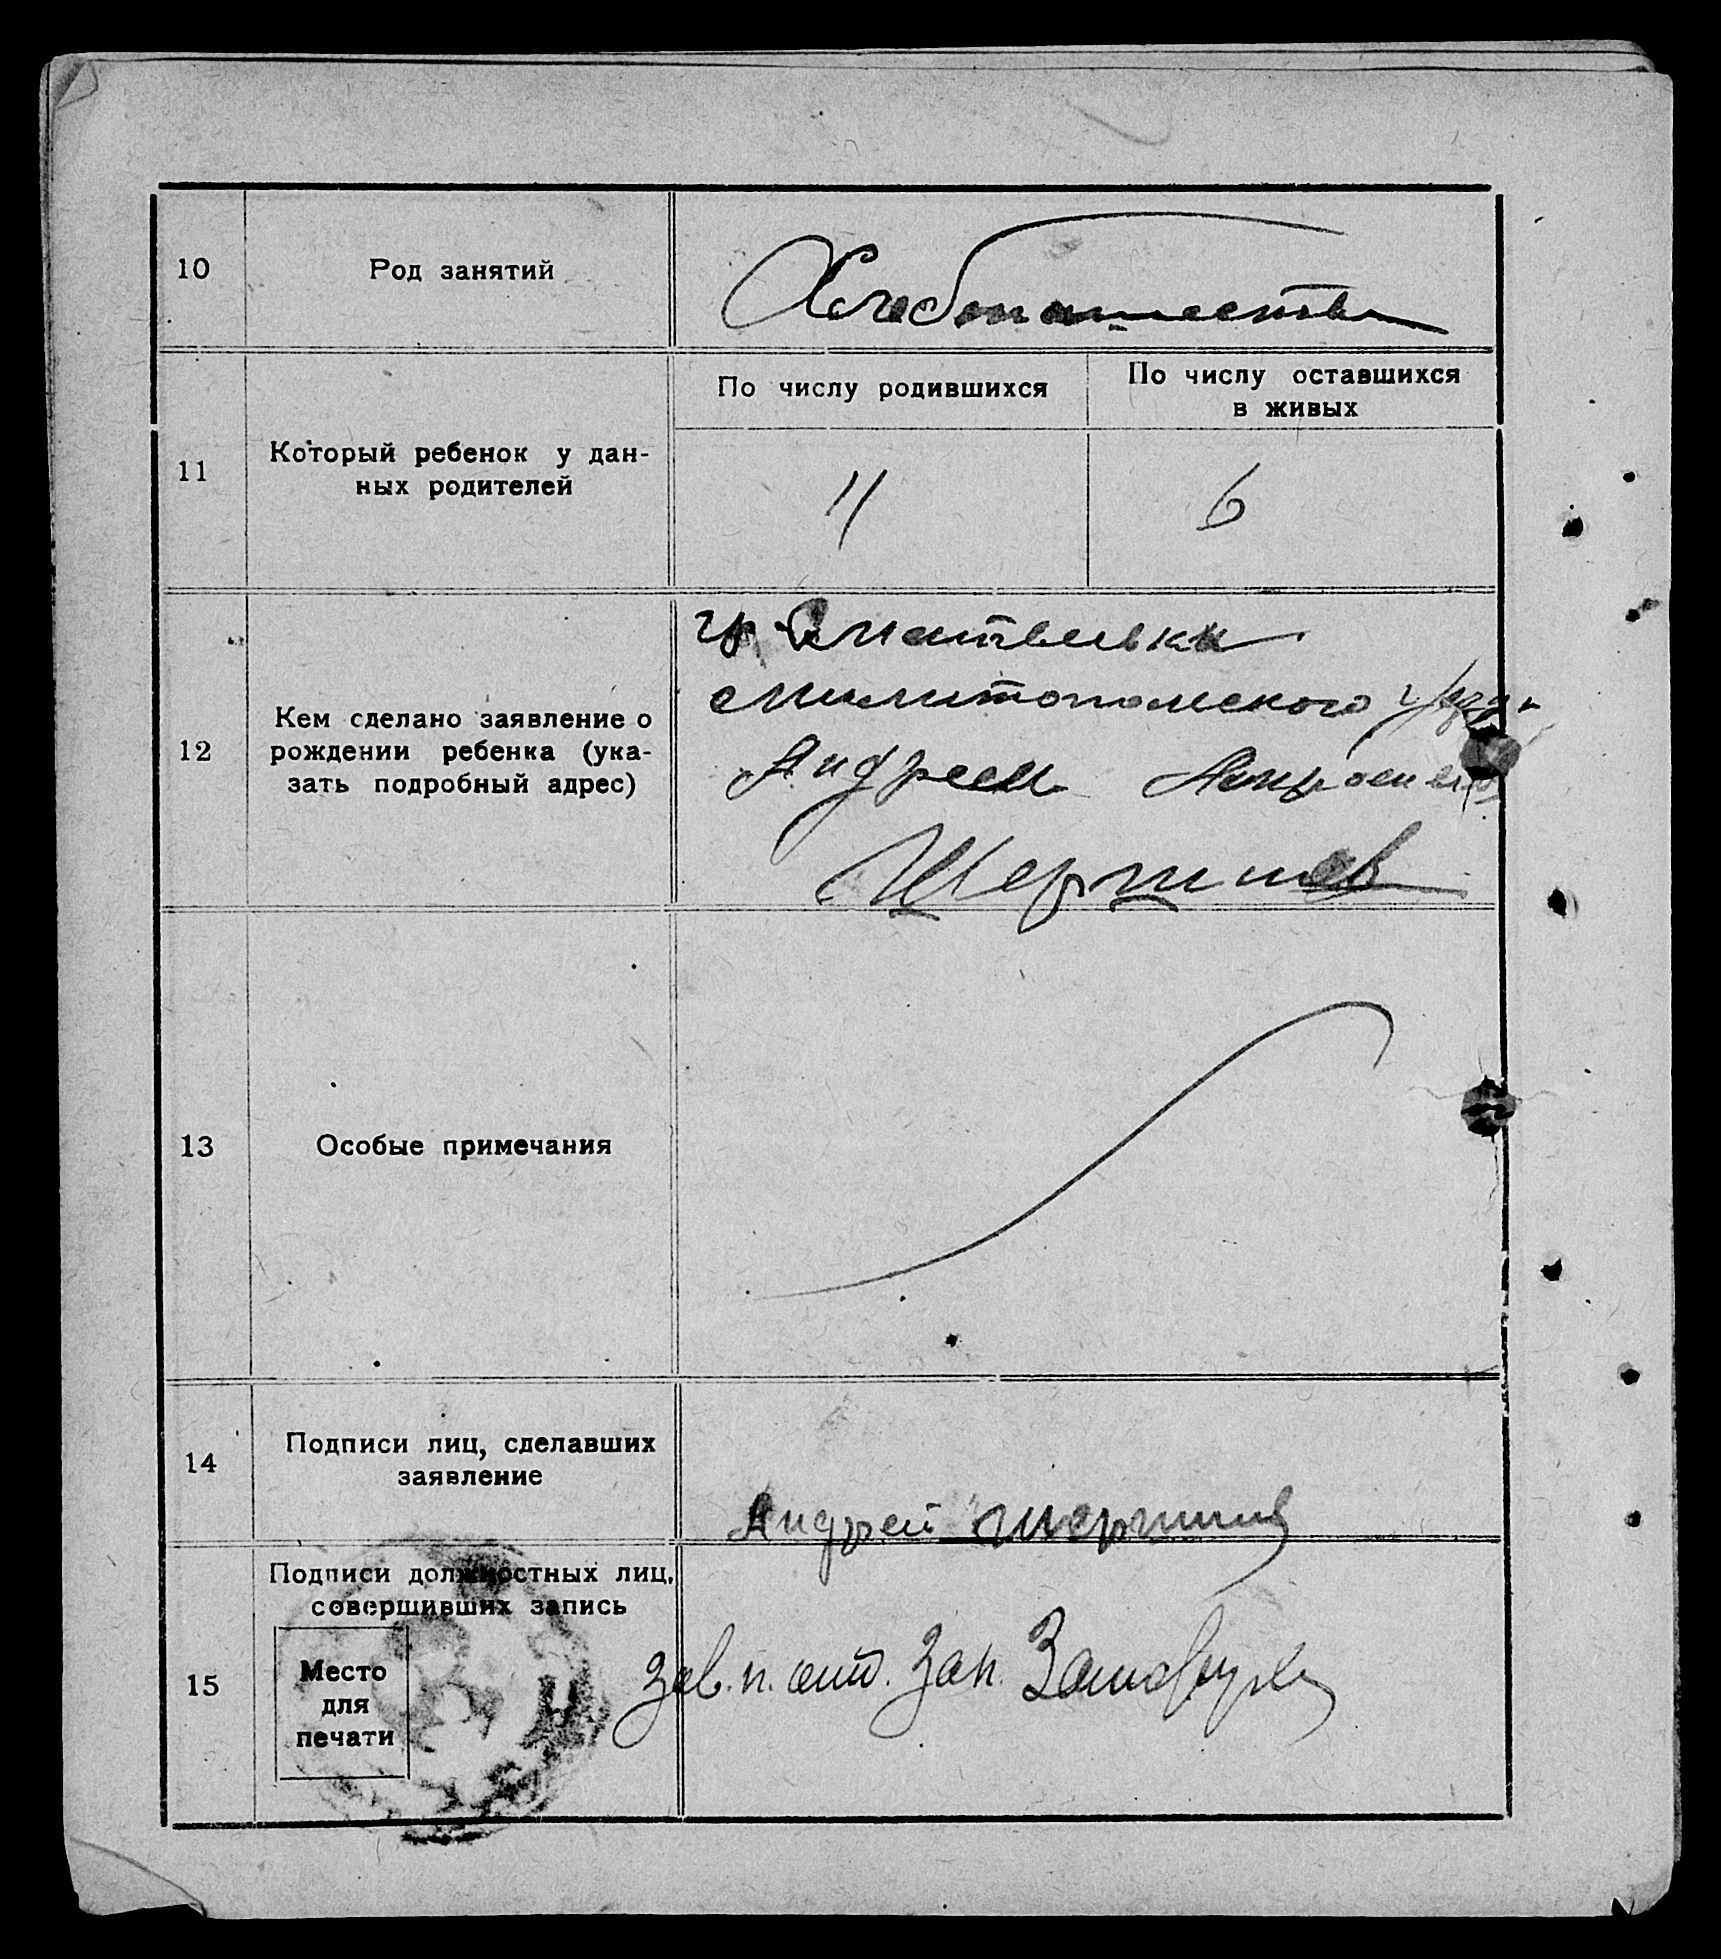 10
Род занятий
Хлебопашество
11
Который ребенок у дан-
ных родителей
По числу родившихся
По числу оставшихся
в живых
11
6
12
Кем сделано заявление о
рождении ребенка (ука-
зать подробный адрес)
гр. с. Матвеевки
Мелитопольского уезда
Андреем
13
Особые примечания
14
Подписи лиц, сделавших
заявление
Андрей
15
Подписи должностных лиц,
совершивших запись
Место
для
печати
Зав. п. отд. Зап.